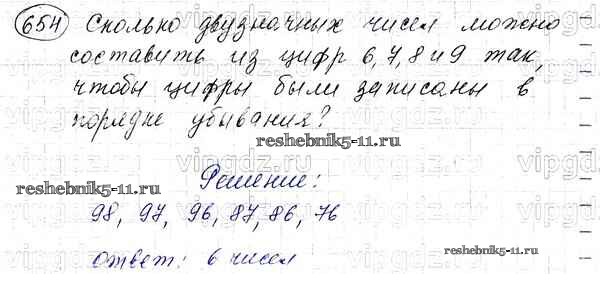 654 Сколько двузначных чисел можно
составить из цифр 6, 7, 8 и 9 так,
чтобы цифры были записаны в
порядке убывания?
reshebnik5-11.ru
Решение:
reshebnik5-11.ru
98, 97, 96, 87, 86, 76
reshebnik5-11.ru
ответ: 6 чисел